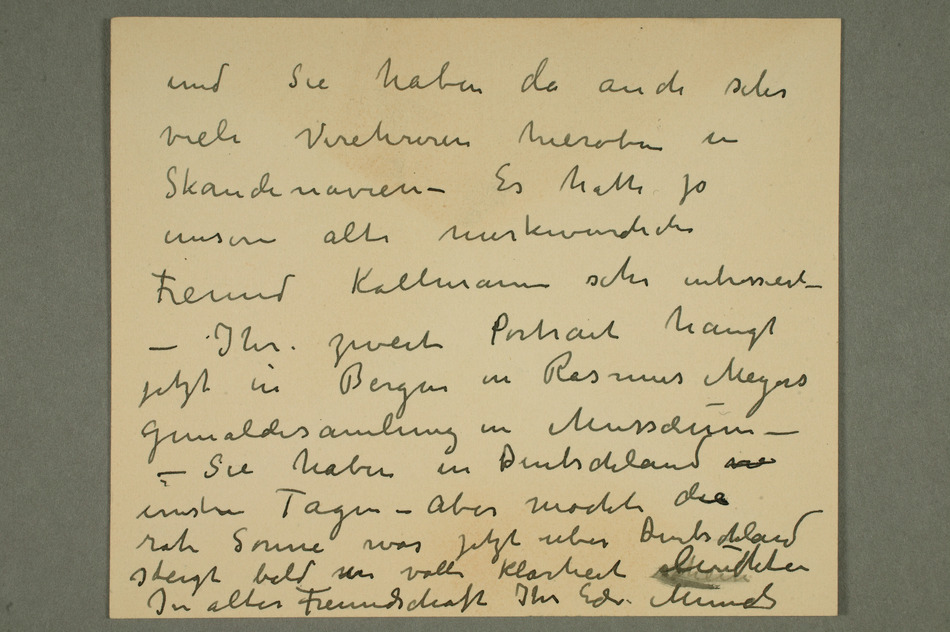 und Sie haben da auch sehr
viele Verehrere hieroben in
Skandinavien – Es hatte jo
unsere alte merkwurdiche
Freund Kollmann sehr intressiert –
– Ihr. zweite Portrait hangt
jetzt in Bergen in Rasmus Meyers
Gemaldesamlung in Mussæum –
– Sie haben in Deutschland
ernste Tagen – aber mochte die
rote Sonne was jetzt uber Deutschland
steigt bald in volle Klarheit leuchten
In alter Freundschaft Ihr Edv. Munch